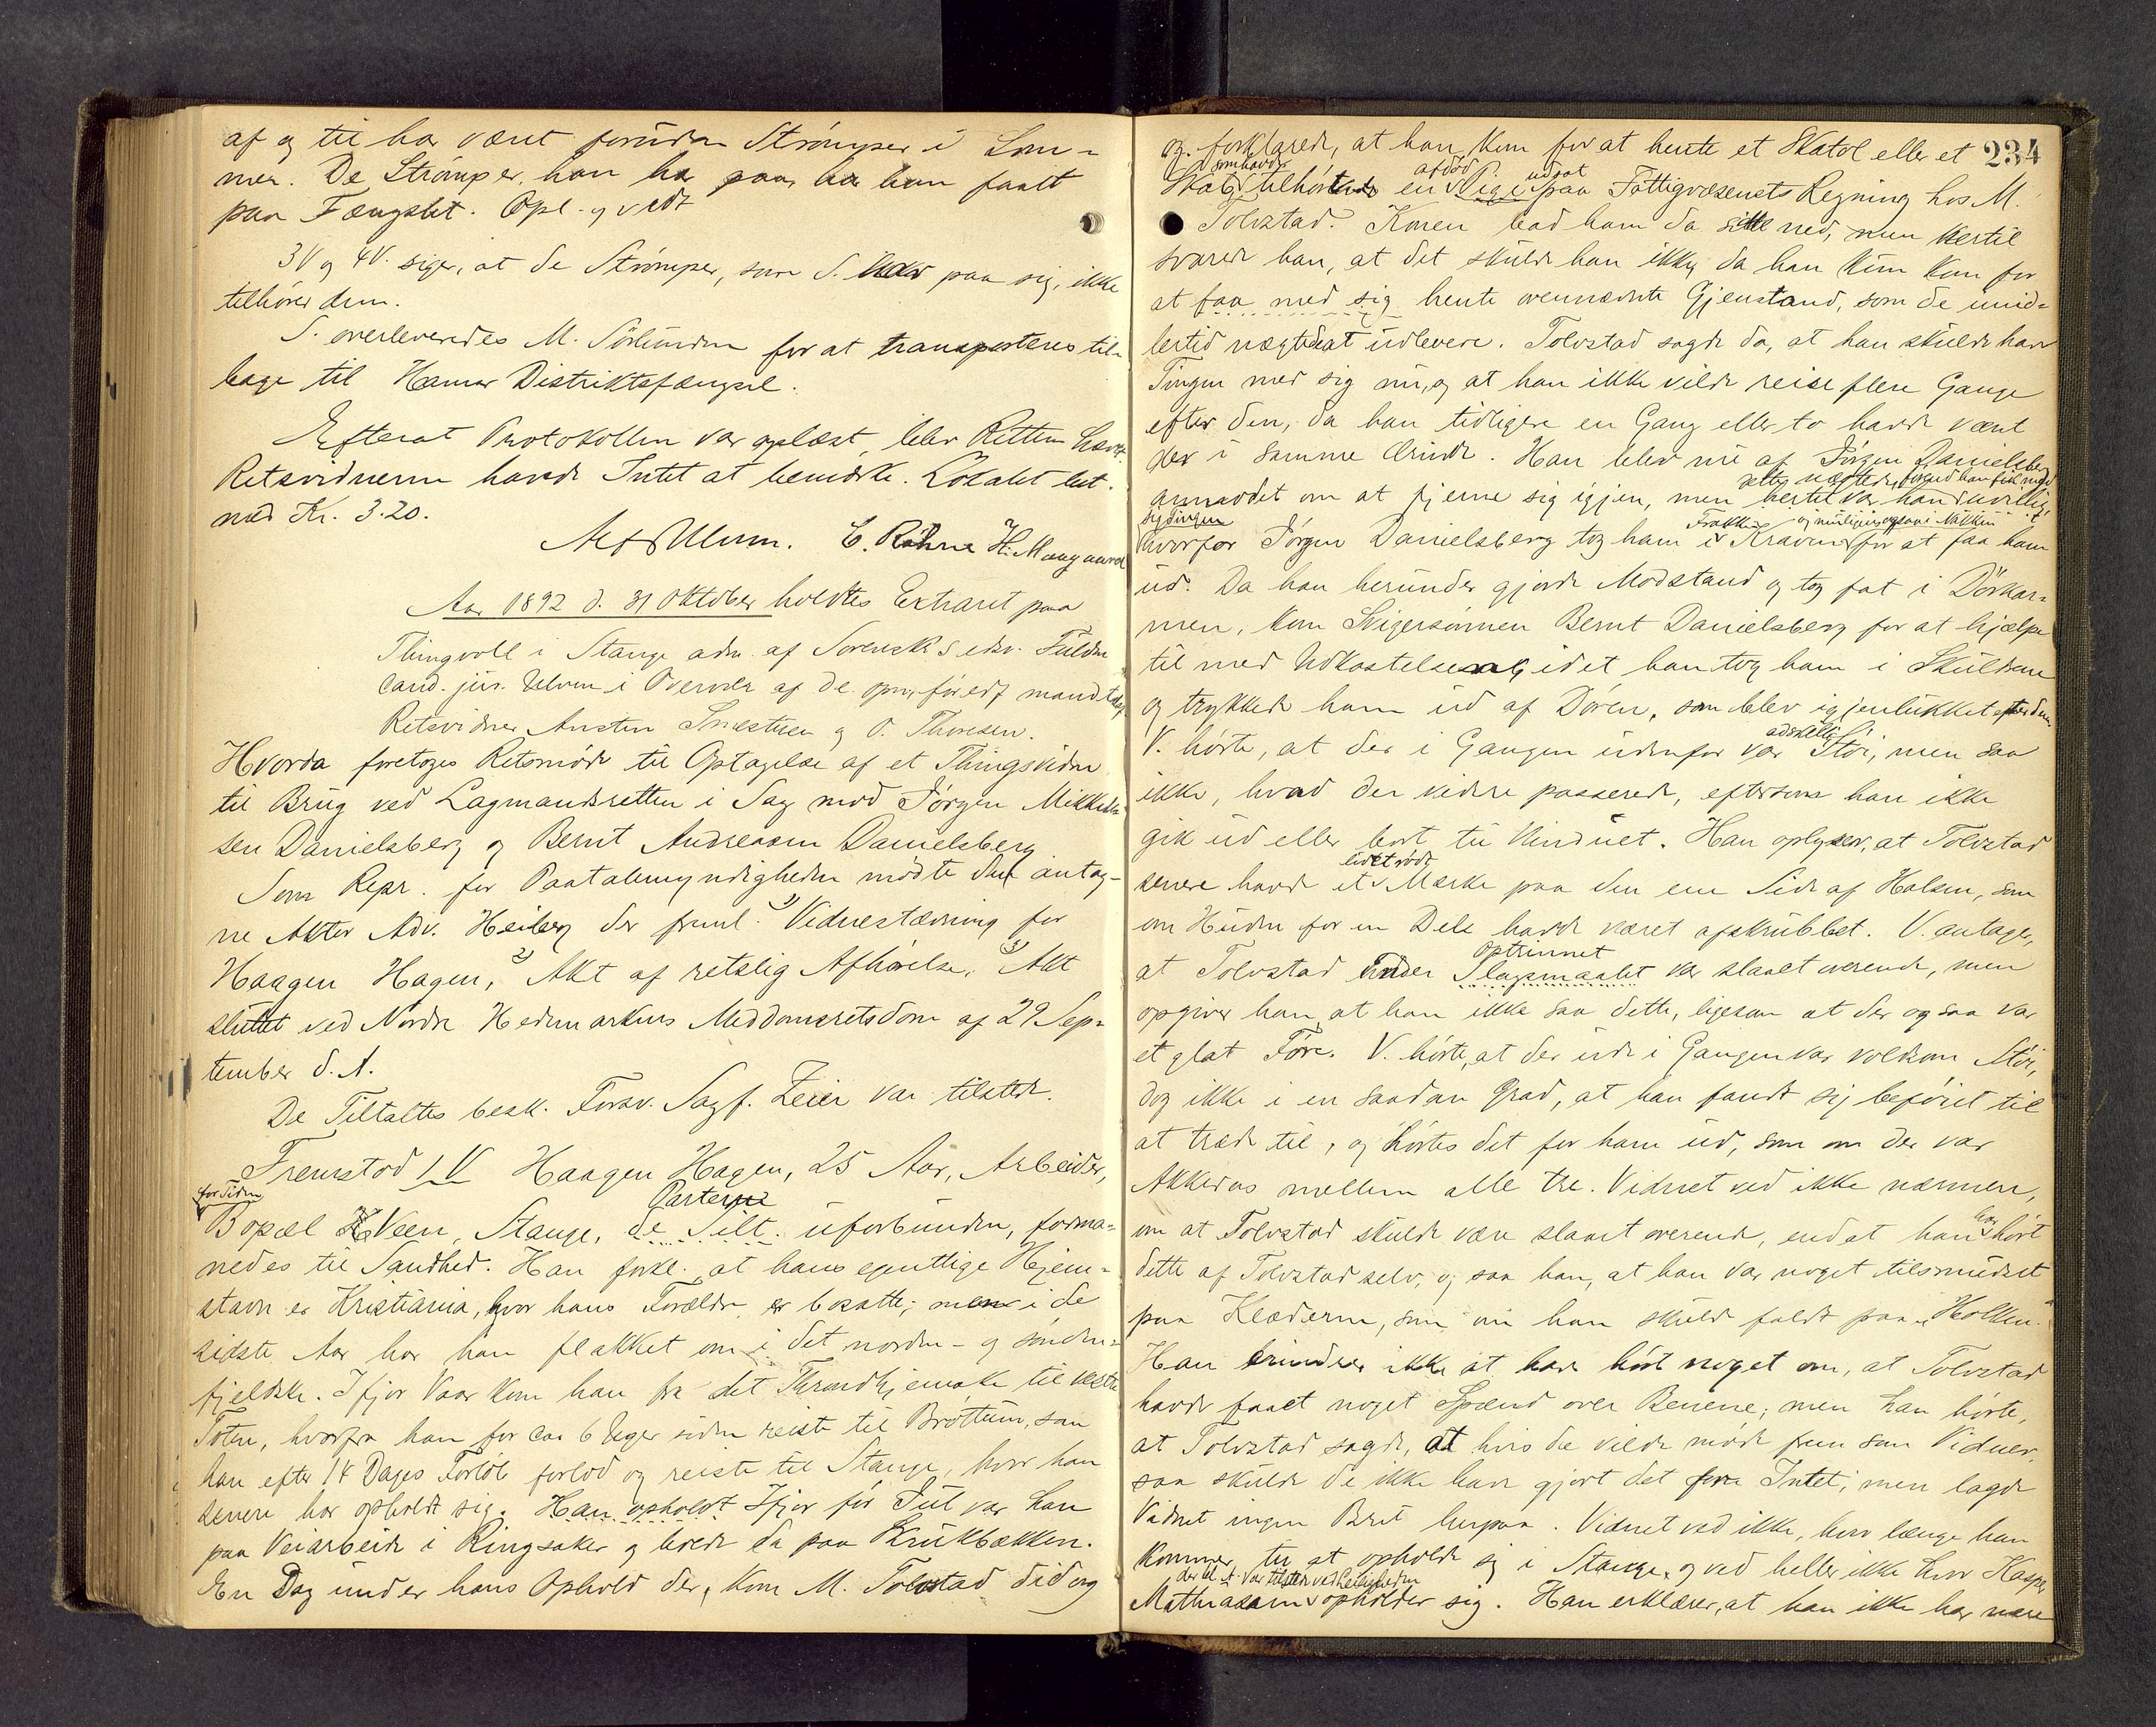 af og til har været foruden Strömper i Lom-
men. De Strömper, han har paa, har han faaet
paa Fængslet. Opl. og vedt
3V og 4V. siger, at de Strömper, som S. har paa sig, ikke
tilhører dem.
S. overleveredes M. Sölunden for at transporteres til-
bage til Hamar Distriktsfængsel.
Efterat Protokollen var oplæst, blev Retten hævet.
Retsvidnerne havde Intet at bemærke. Lokalet bet.
med Kr. 3.20.
Alf Ulven. E. Röhne H. Mangaard
Aar 1892 d. 31 Oktober holdtes Extraret paa
Thingvoll i Stange adm. af Sorensk.s edsv. Fuldm
cand. jur. Ulven i Overvær af de opn. före edf mandtagf
Retsvidner Austen Smestuen og O. Thoresen.
Hvorda foretoges Retsmöde til Optagelse af et Thingsvidne
til Brug ved Lagmandsretten i Sag mod Jörgen Mikkel-
sen Danielsberg og Bernt Andreasen Danielsberg
Som Repr. for Paatalemyndigheden mödte den antag-
ne Aktor Adv. Heiberg der freml. 1) Vidnestævning for
Haagen Hagen, 2) Akt af retslig Afhörelse, 3) Akt
sluttet ved Nordre Hedmarkens Meddomsretsdom af 29 Sep-
tember d. A.
De Tiltaltes besk. Forsv. Sagf. Zeier var tilstede.
Fremstod 1 V Haagen Hagen, 25 Aar, Arbeider,
for Tiden Parterne
Bopæl Veen, Stange, de Tilt. uforbunden, forma-
nedes til Sandhed. Han forkl. at hans egentlige Hjem-
stavn er Kristiania, hvor hans Forældre er bosatte; men i de
sidste Aar har han flakket om i det norden- og sönden-
fjeldske. Ifjor Vaar kom han fra det Throndhjemske til vestre
Toten, hvorfra han for ca 6 Uger siden reiste til Brøttum, som
han efter 14 Dages Forløb forlod og reiste til Stange, hvor han
senere har opholdt sig. Han opholdt Ifjor för Jul var han
paa Veiarbeide i Ringsaker og boede da paa Krukbækken.
En Dag under hans Ophold der, kom M. Tolvstad did og
234
og forklarede, at han kom for at hente et Skatol eller et
som havde afdöd udsat
Skab tilhört en Pige paa Fattigvæsenets Regning hos M.
Tolvstad. Konen bad ham da sitte ned, men hertil
svarede han, at det skulde han ikke, da han kun kom for
at faa med sig hente ovennævnte Gjenstand, som de imid-
lertid nægtede at udlevere. Tolvstad sagde da, at han skulde have
Tingen med sig nu, og at han ikke vilde reise flere Gange
efter den, da han tidligere en Gang eller to havde været
der i samme Ærinde. Han blev nu af Jörgen Danielsberg
dette nægtede, förend han fik med
anmodet om at fjerne sig igjen, men hertil var han uvillig,
sig Tingen Frakke- og muligens ogsaa i Nakken
hvorfor Jörgen Danielsberg tog ham i Kraven for at faa ham
ud. Da han herunder gjorde Modstand og tog fat i Dörkar-
men, kom Svigersönnen Bernt Danielsberg for at hjælpe
til med Udkastelsen, idet han tog ham i Skuldrene
og trykkede ham ud af Dören, som blev igjenlukket efter dem.
adskillig
V. hörte, at der i Gangen udenfor var Stöi, men saa
ikke, hvad der videre passerede, eftersom han ikke
gik ud eller bort til Vinduet. Han oplyser, at Tolvstad
lidet rödt
senere havde et Mærke paa den ene Side af Halsen, som
om Huden for en Dels havde været afskrubbet. V. antager,
Optrinnet
at Tolvstad under Slagsmaalet var slaaet overende, men
opgiver han, at han ikke saa dette, ligesom at der ogsaa var
et glat Före. V. hörte, at der ude i Gangen var voldsom Stöi,
dog ikke i en saadan Grad, at han fandt sig beföiet til
at træde til, og hörtes det for ham ud, som om der var
Akkedas mellem alle tre. Vidnet ved ikke nærmere,
har
om at Tolvstad skulde være slaaet overende, end at han hört
dette af Tolvstad selv, og saa han, at han var noget tilsmudset
paa Klæderne, som om han skulde faldt paa "Holken."
Han erindrer ikke at have hört noget om, at Tolvstad
havde faaet noget Spænd over Benene; men han hörte,
at Tolvstad sagde, at hvis de vilde möde frem som Vidner,
saa skulde de ikke have gjort det for Intet; men lagde
Vidnet ingen Bret herpaa. Vidnet ved ikke, hvor længe han
kommer til at opholde sig i Stange, og ved heller ikke hvor Kasper
der bl. A. var tilstede ved Leiligheden
Mathiasen opholder sig. Han erklærer, at han ikke har mere